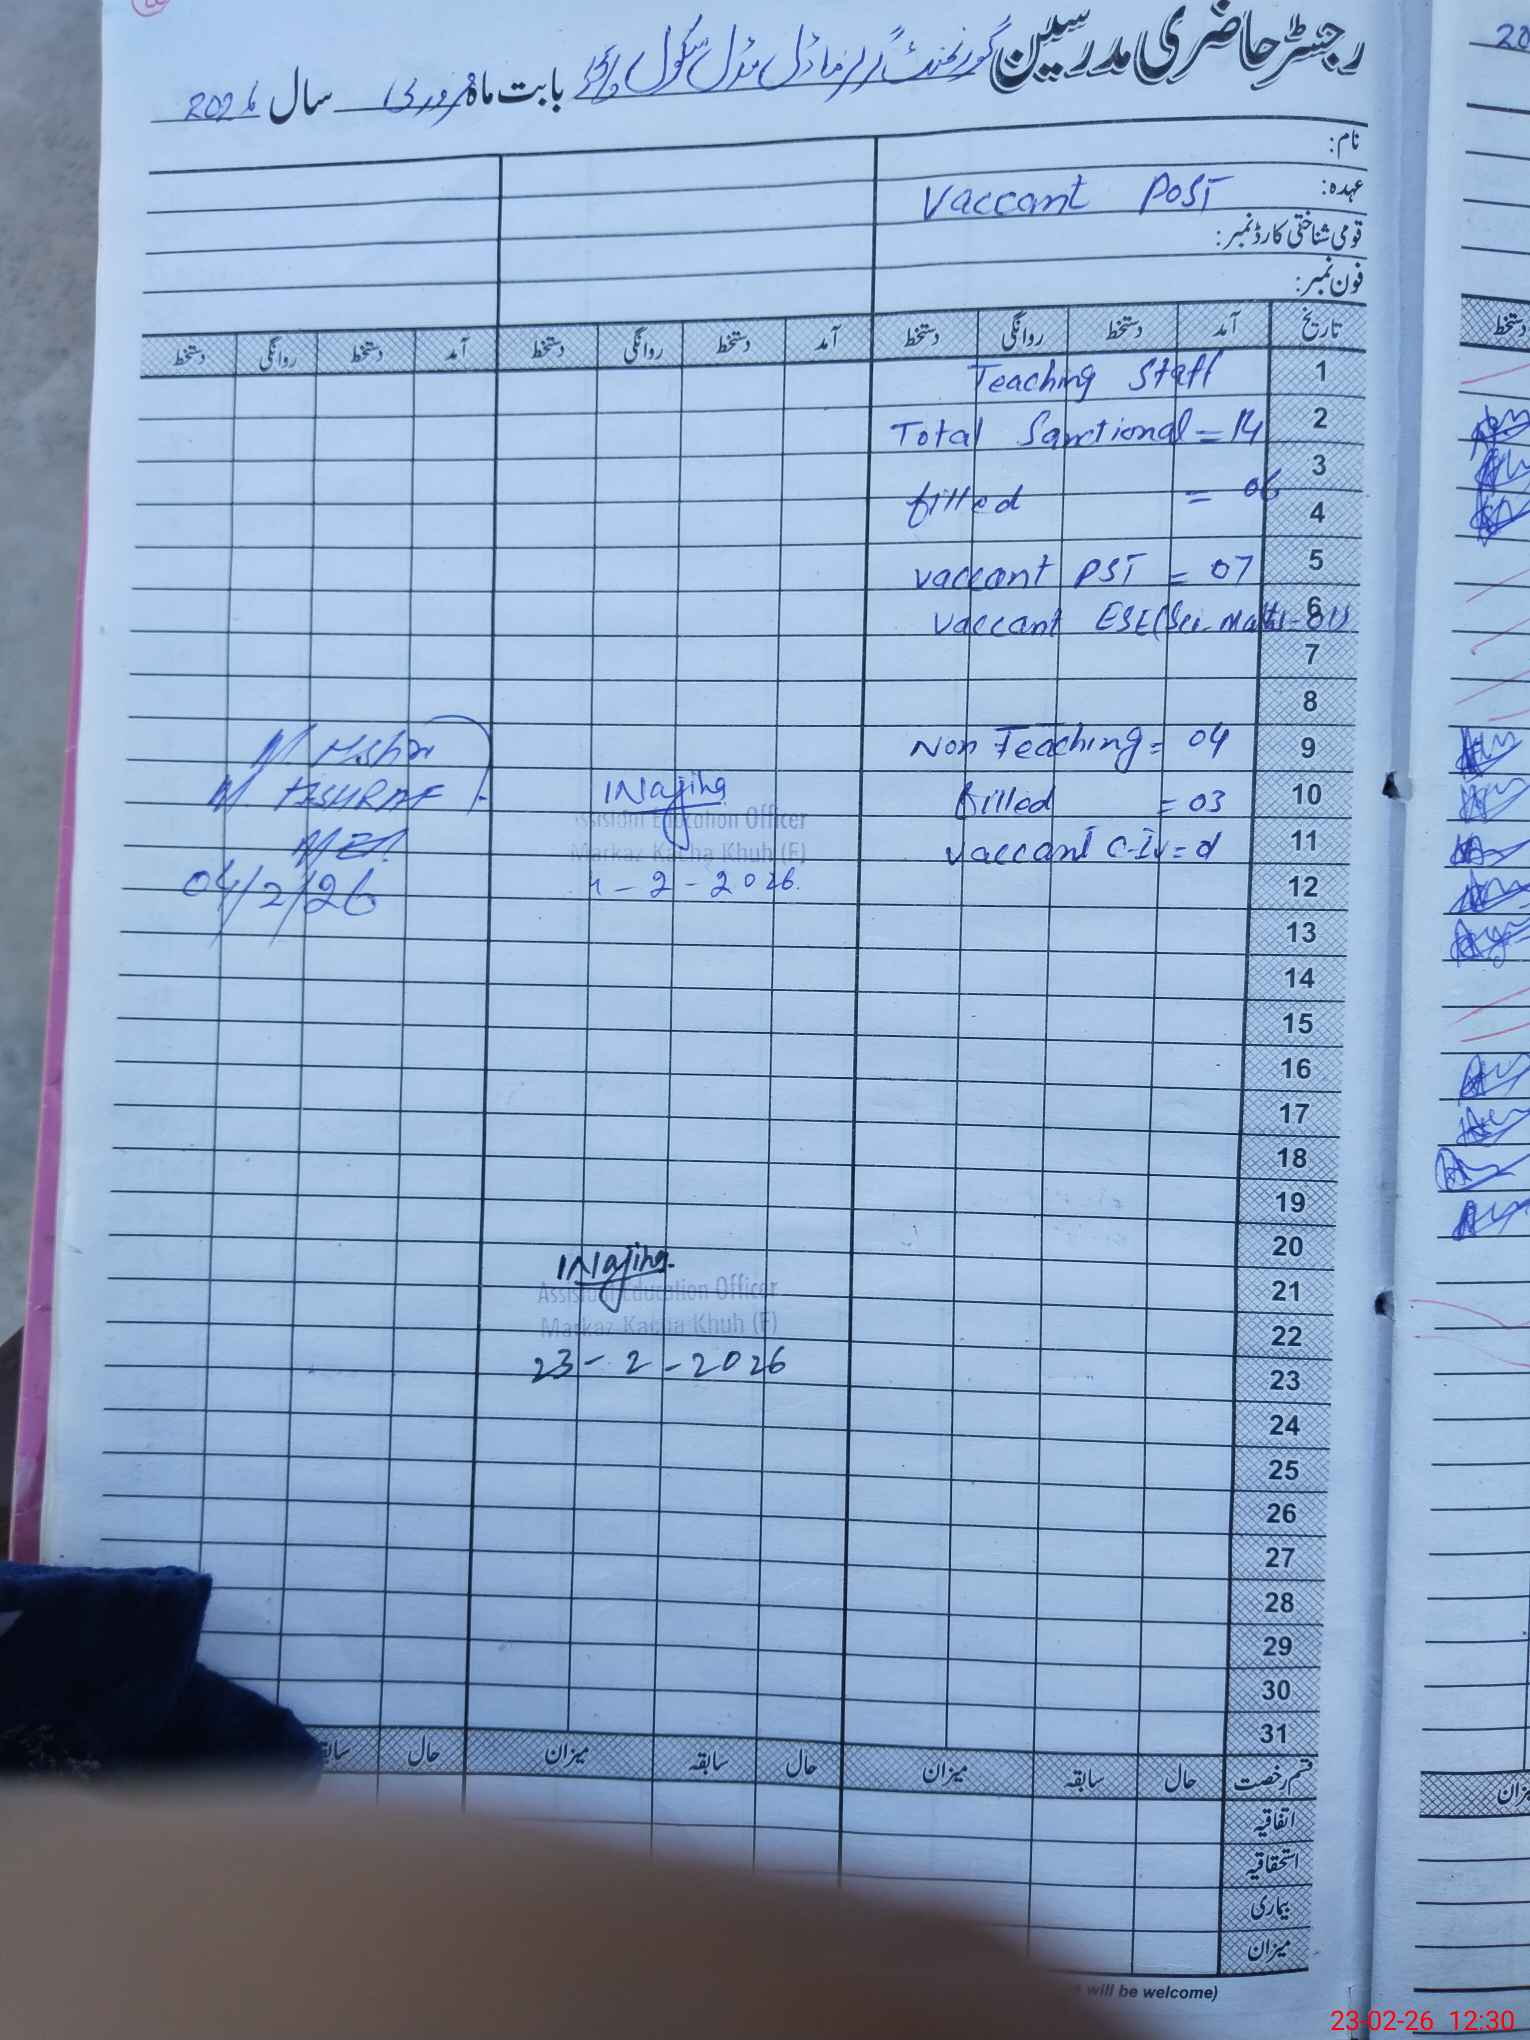 رجسٹر حاضری مدرسین گورنمنٹ گرلز ماڈل مڈل سکول بابت ماہ فروری سال 2026
نام:
عہدہ: Vaccant Post
قومی شناختی کارڈ نمبر:
فون نمبر:
تاریخ آمد دستخط روانگی دستخط آمد دستخط روانگی دستخط آمد دستخط روانگی دستخط
1 Teaching Staff
2 Total Sanctional = 14
3
filled = 06
4
5 vaccant PST = 07
6 vaccant ESE (Sci-Maths-01)
7
8
9 Non Teaching = 04
10 filled = 03
11 vaccant C-IV = 01
Assistant Education Officer
Markaz Kacha Khuh (F)
12 - 2 - 2026.
04/2/26
13
14
15
16
17
18
19
20
21 Assistant Education Officer
22 Markaz Kacha Khuh (F)
23 23 - 2 - 2026
24
25
26
27
28
29
30
31
قسم رخصت حال سابقہ میزان حال سابقہ میزان حال
اتفاقیہ
استحقاقیہ
بیماری
میزان
will be welcome)
دستخط
میزان
23-02-26 12:30